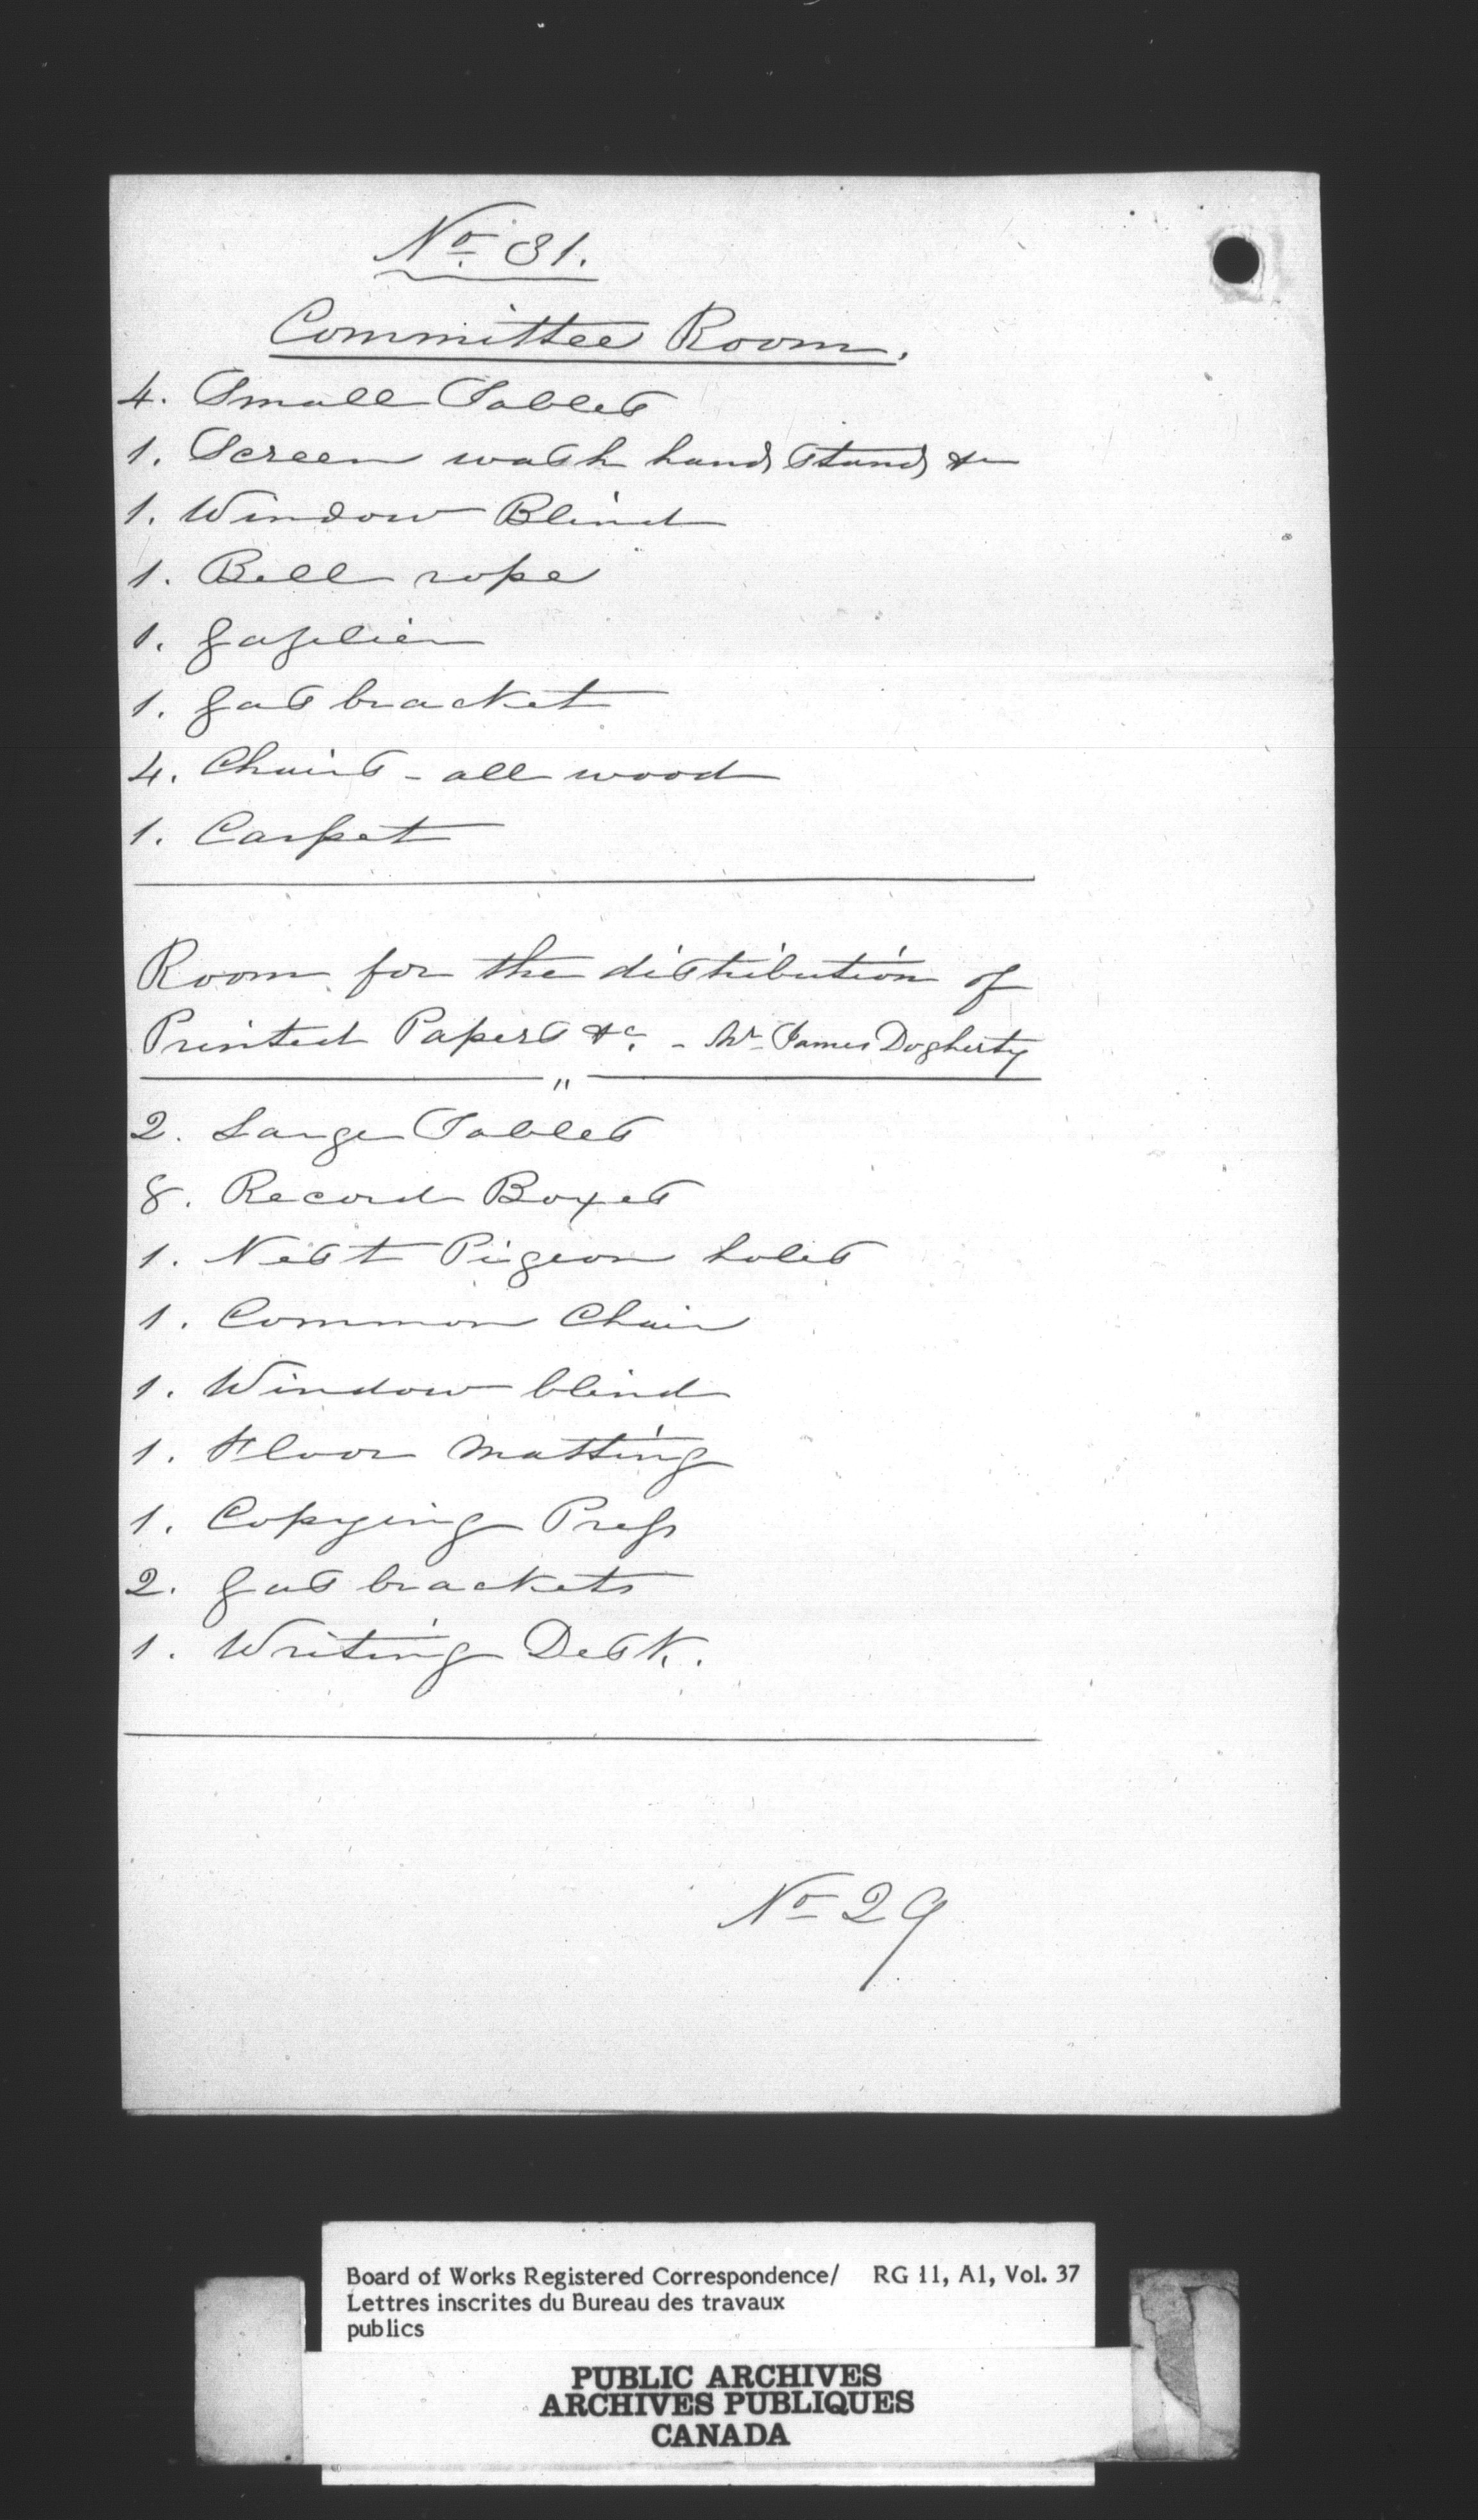 No. 31.
Committee Room.
4. Small Tables
1. Screen wash hand stand &c
1. Window Blind
1. Bell rope
1. Gaselier
1. Gas bracket
4. Chairs - all wood
1. Carpet
Room for the distribution of
Printed Papers &c. - Mr James Dogherty
"
2. Large Tables
8. Record Boxes
1. Nest Pigeon holes
1. Common Chair
1. Window blind
1. Floor Matting
1. Copying Press
2. Gas brackets
1. Writing Desk.
No 29
Board of Works Registered Correspondence/ RG 11, A1, Vol. 37
Lettres inscrites du Bureau des travaux
publics
PUBLIC ARCHIVES
ARCHIVES PUBLIQUES
CANADA